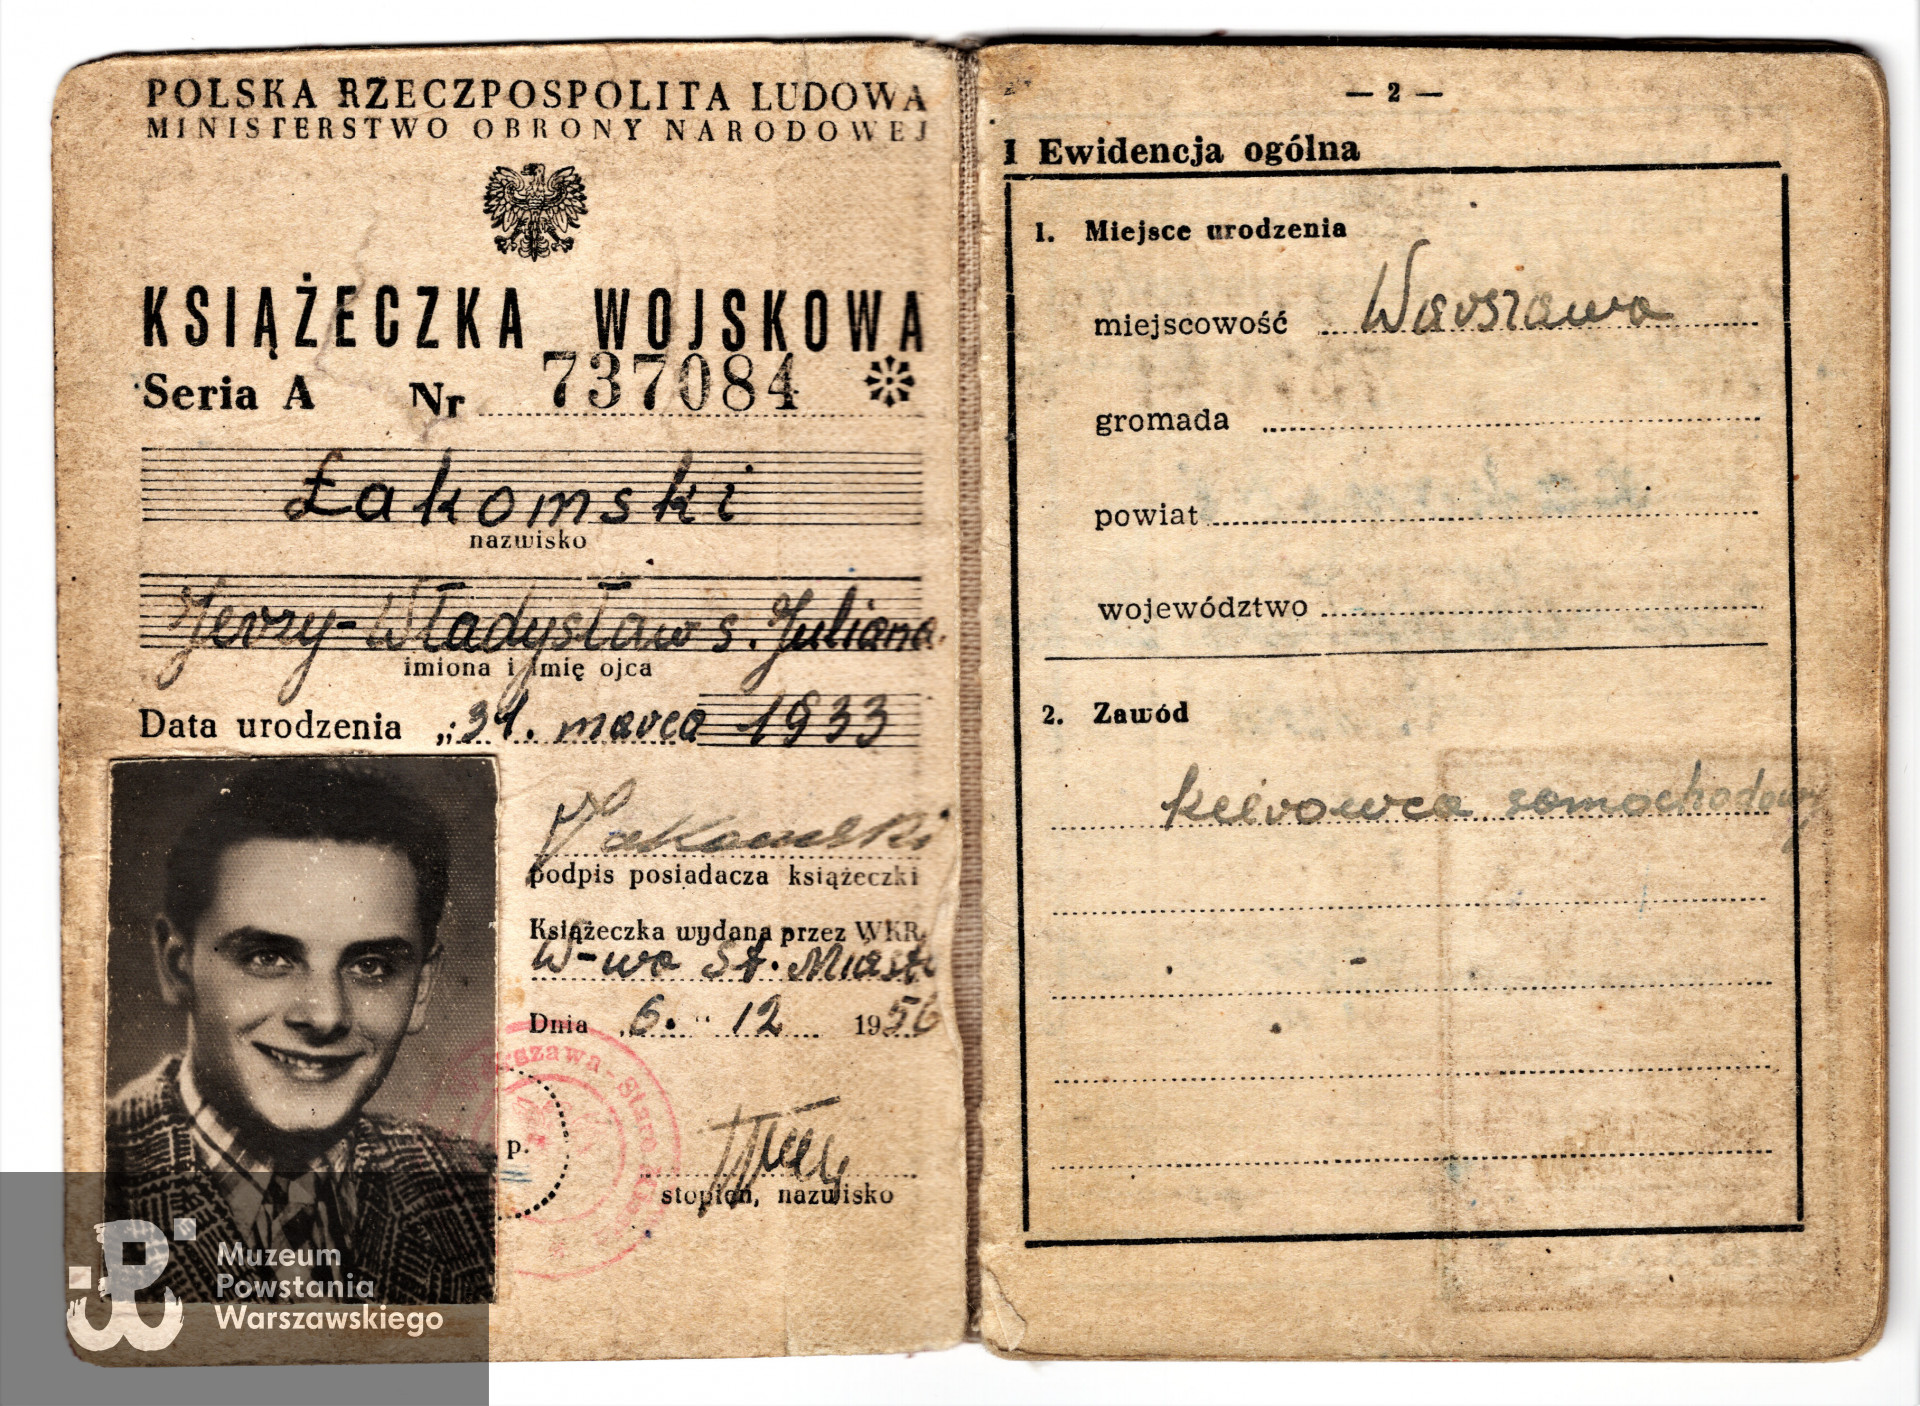 POLSKA RZECZPOSPOLITA LUDOWA
MINISTERSTWO OBRONY NARODOWEJ
KSIĄŻECZKA WOJSKOWA
Seria A Nr 737084
Łakomski
nazwisko
Jerzy-Władysław s. Juliana
imiona i imię ojca
Data urodzenia „31. marca 1933
Łakomski
podpis posiadacza książeczki
Książeczka wydana przez WKR
W-wa St. Miasto
Dnia 6. " 12 1956
Warszawa-Stare
p.
stopień, nazwisko
Muzeum
Powstania
Warszawskiego
— 2 —
I Ewidencja ogólna
1. Miejsce urodzenia
miejscowość Warszawa
gromada
powiat
województwo
2. Zawód
kierowca samochodowy